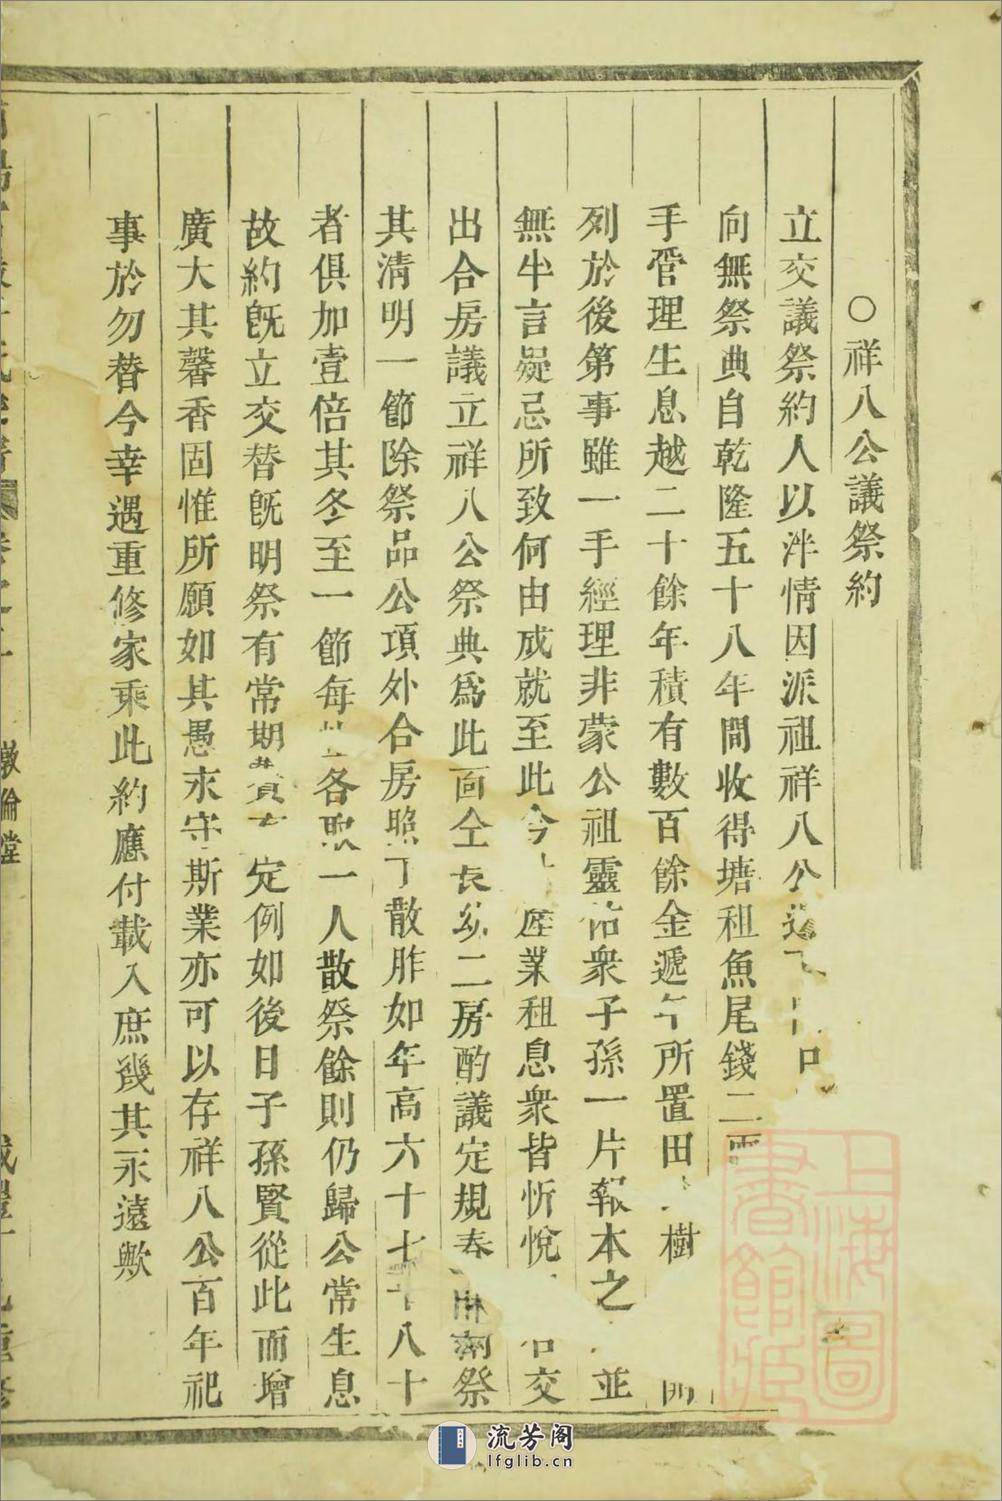 ○祥八公議祭約
立交議祭約人以泮情因派祖祥八公
向無祭典自乾隆五十八年間收得塘租魚尾錢二兩
手管理生息越二十餘年積有數百餘金遞年所置田樹
列於後第事雖一手經理非蒙公祖靈佑衆子孫一片報本之並
無半言疑忌所致何由成就至此今產業租息衆皆忻悅交
出合房議立祥八公祭典爲此面仝長幼二房酌議定規春祭
其清明一節除祭品公項外合房照丁散胙如年高六十七十八十
者俱加壹倍其冬至一節每各取一人散祭餘則仍歸公常生息
故約旣立交替旣明祭有常期定例如後日子孫賢從此而增
廣大其馨香固惟所願如其愚末守斯業亦可以存祥八公百年祀
事於勿替今幸遇重修家乘此約應付載入庶幾其永遠歟
敦倫堂
上海圖書館藏
流芳阁
lfglib.cn